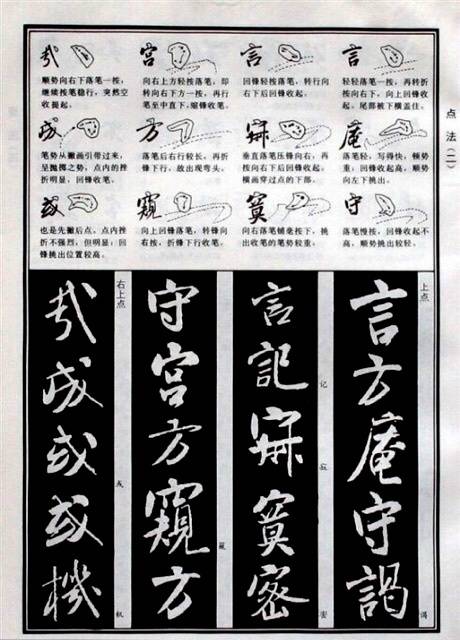 点法(二)
哉
顺势向右下落笔一按,
继续按笔稳行,突然空
收提起。
宫
向右上方轻按落笔,即
转向右下方一按,再行
笔至中直下,缩锋收笔。
言
回锋轻按落笔,转行向
右下后回锋起。
言
轻轻落笔一按,再转折
按向右下,向上回锋收
起。尾部被下横盖住。
成
笔势从撇画引带过来,
呈抛掷之势,点内的挫
折明显,回锋收笔。
方
落笔后右行较长,再折
锋下行,故出现弯头。
寐
垂直落笔压锋向右,再
按向右下后回锋收起;
横画穿过点的下部。
庵
落笔轻,写得快,顿势
重;回锋收起高,顺势
向左下挑出。
或
也是先撇后点。点内挫
折不强烈,但明显;回
锋挑出位置较高。
窥
向上回锋落笔,转锋向
右按,折锋下行收笔。
寘
向右落笔铺毫按下,挑
出收笔的笔势较重。
守
落笔慢按,回锋收起不
高,顺势挑出较轻。
上点
言方庵守謁
谒
言記寐寘密
记
寂
密
守宫方窺方
窥
右上点
哉成或或機
戎
机